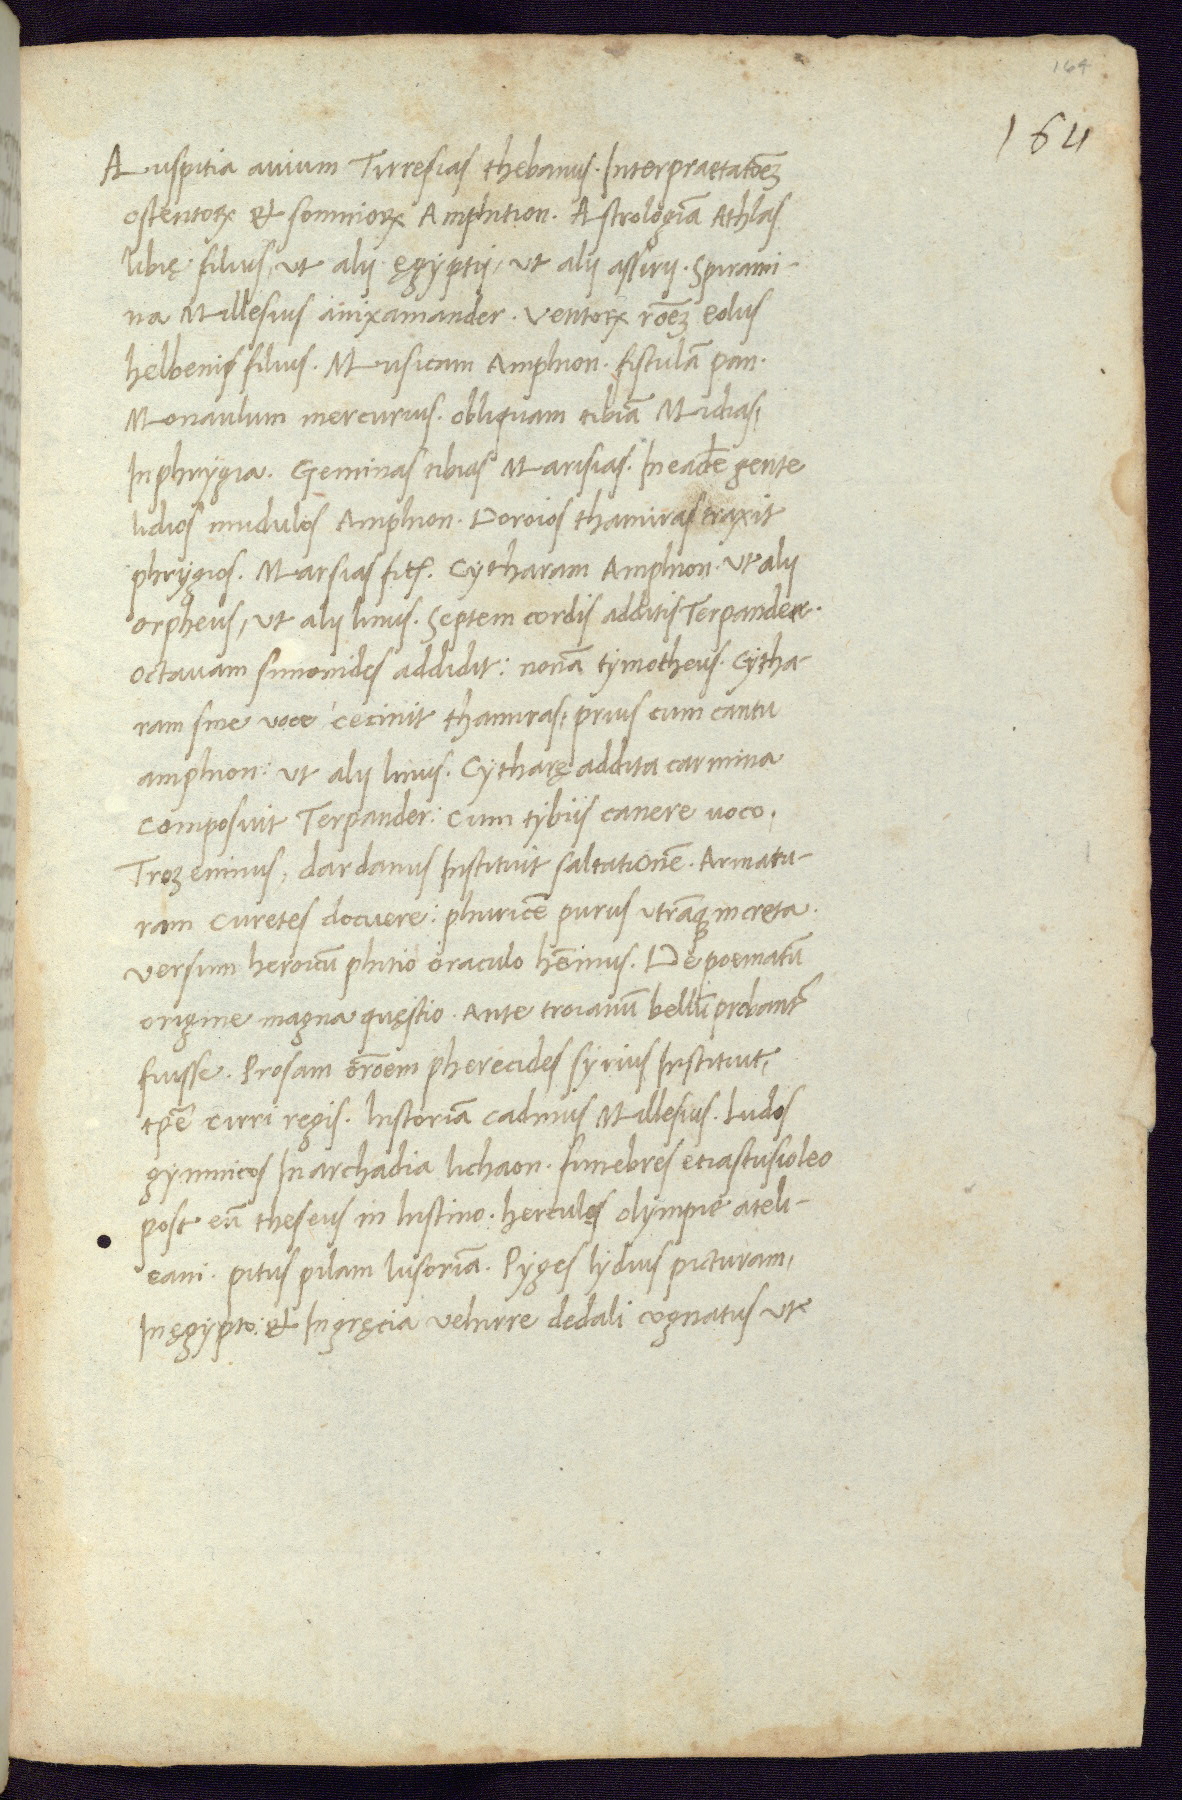 164
164
Auspitia avium Tirresias thebanus. Interpraetatōeȝ
ostentoꝝ et somnioꝝ Amphition. Astrologiā Athlas
libię filius, ut alii ęgyptii, ut alii assirii. Spirami-
na Millesius ānixamander. Ventoꝝ rōeȝ eolus
helbenis filius. Musicam Amphion. fistulā pan.
Monaulum mercurius. obliquam tibiā Midas,
In phrygia. Geminas tibias Marisias. In eadē gente
lidios mudulos Amphion. Doroios thamiras traxit
phrygios. Marsias Cytharam Amphion. ut alii
orpheus, ut alii linus. Septem cordis additis Terpander.
octavam simonides addidit: nonā tymotheus. Cytha-
ram sine voce cecinit thamiras, prius cum cantu
amphion: ut alii linus. Cytharę addita carmina
composuit Terpander: Cum tybiis canere voco.
Trozeninus, dardanus Instituit saltationē. Armatu-
ram Curetes docuere: phuricē purus utrāqꝫ in creta.
versum heroicū phitio oraculo hēimus. De poematū
origine magna quęstio. Ante troianū bellū probant̄
fuisse. Prosam orōem pherecides syrius Instituit,
tpē cirri regis. historiā cadmus Millesius. Ludos
gymnicos In archadia lichaon. funebres etiastusioleo
post eū theseus in histino. hercules olympie ateli-
eani. pitus pilam lusoriā. Pyges lydius picturam,
In ęgypto: et In gręcia vehirre dedali cognatus ut